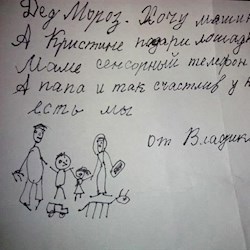 Дед Мороз. Хочу машин
А Кристине подари лошадк
Маме сенсорный телефон
А папа и так счастлив у н
есть мы
от Владик